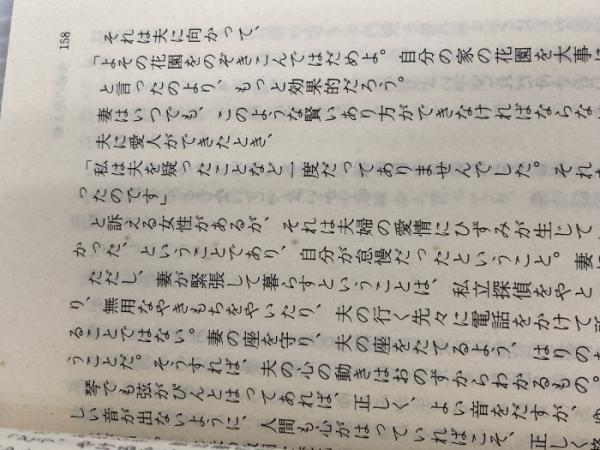 158
それは夫に向かって、
「よその花園をのぞきこんではだめよ。自分の家の花園を大事に
と言ったのより、もっと効果的だろう。
妻はいつでも、このような賢いあり方ができなければならな
夫に愛人ができたとき、
「私は夫を疑ったことなど一度だってありませんでした。それ
ったのです」
と訴える女性があるが、それは夫婦の愛情にひずみが生じて
かった、ということであり、自分が怠慢だったということ。妻に
ただし、妻が緊張して暮らすということは、私立探偵をやと
り、無用なやきもちをやいたり、夫の行く先々に電話をかけて
ることではない。妻の座を守り、夫の座をたてるよう、はりの
うことだ。そうすれば、夫の心の動きはおのずからわかるもの。
琴でも弦がぴんとはってあれば、正しく、よい音をだすが、
しい音が出ないように、人間も心がはっていればこそ、正しく